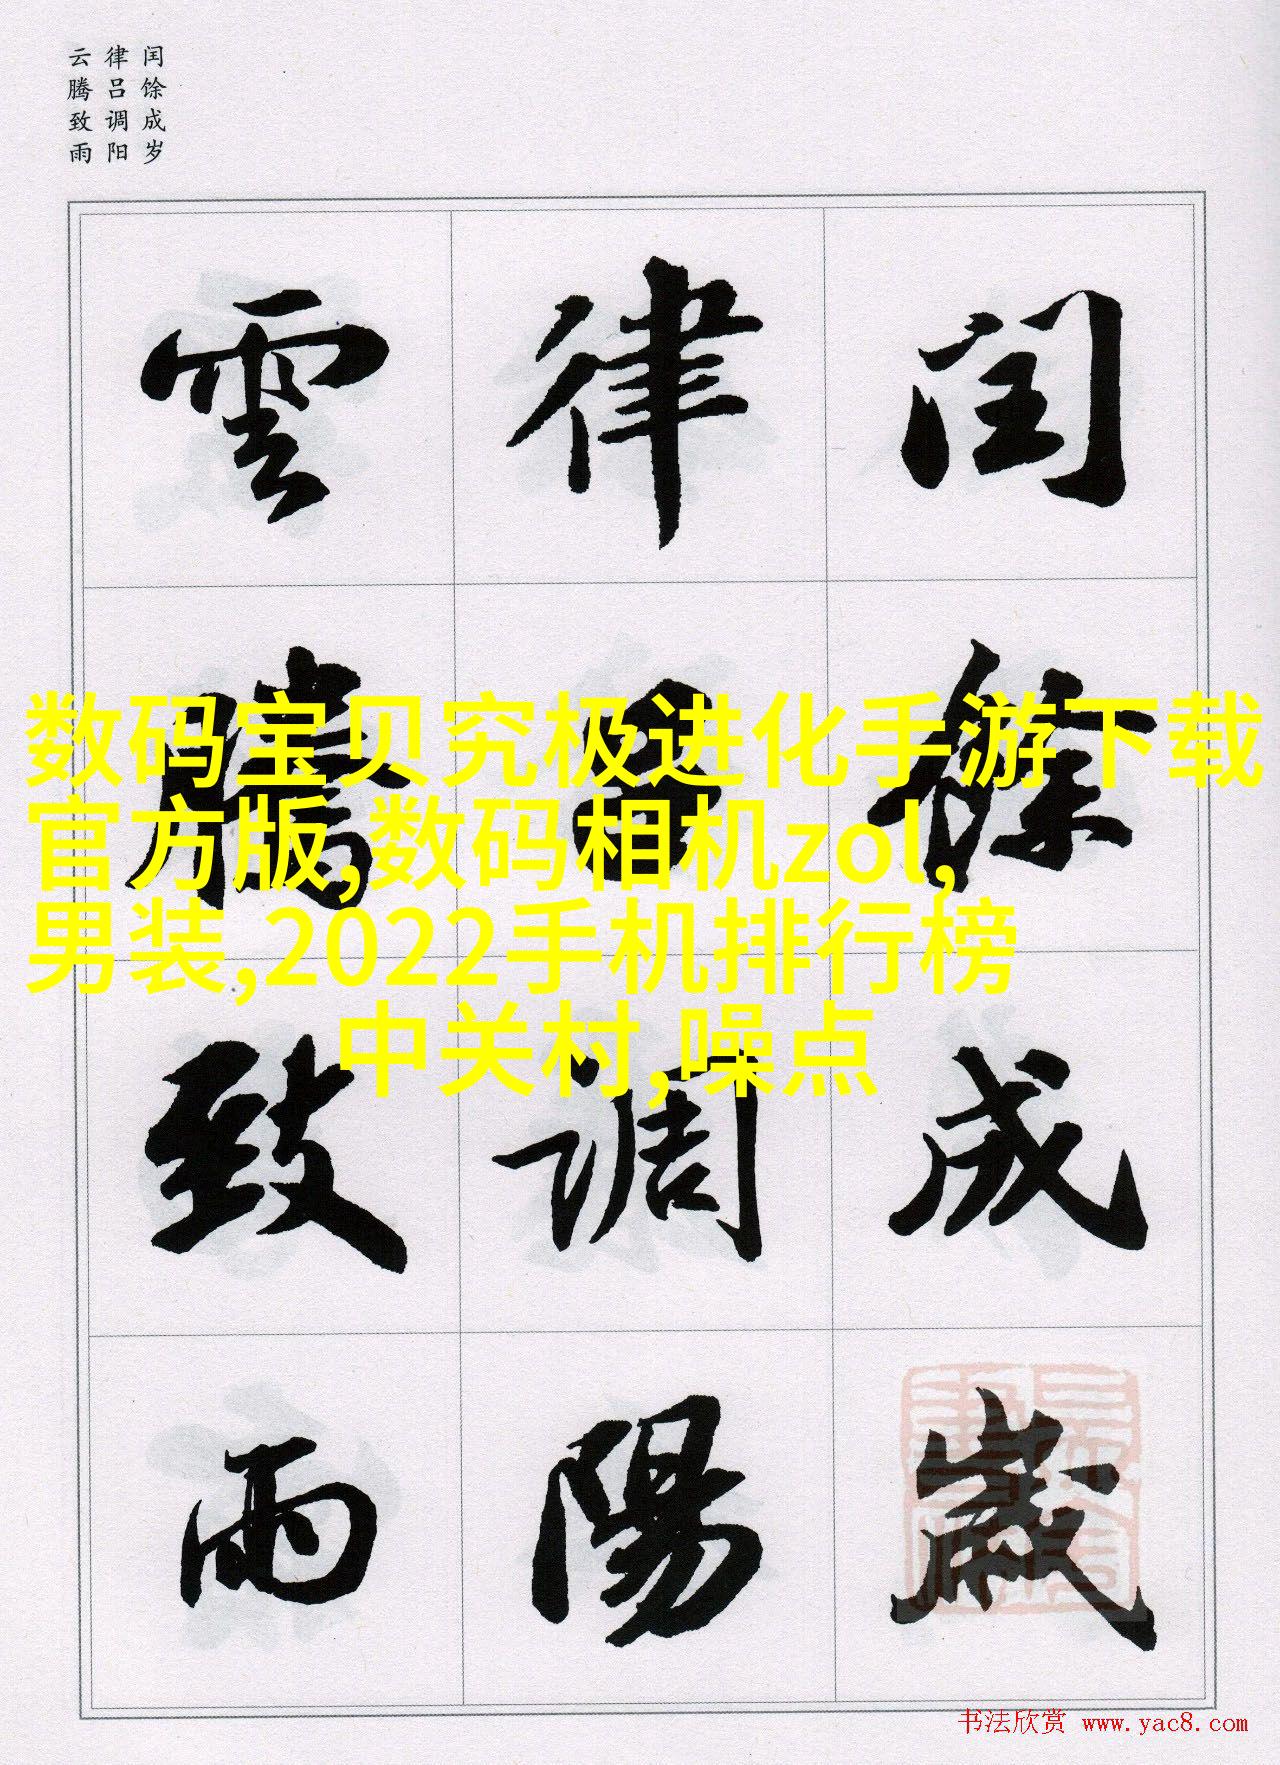 闰馀成岁
律吕调阳
云腾致雨
閏餘成歲
律吕調陽
雲騰致雨
数码宝贝究极进化手游下载
官方版,数码相机zol,
男装,2022手机排行榜
中关村,噪点
书法欣赏 www.yac8.com